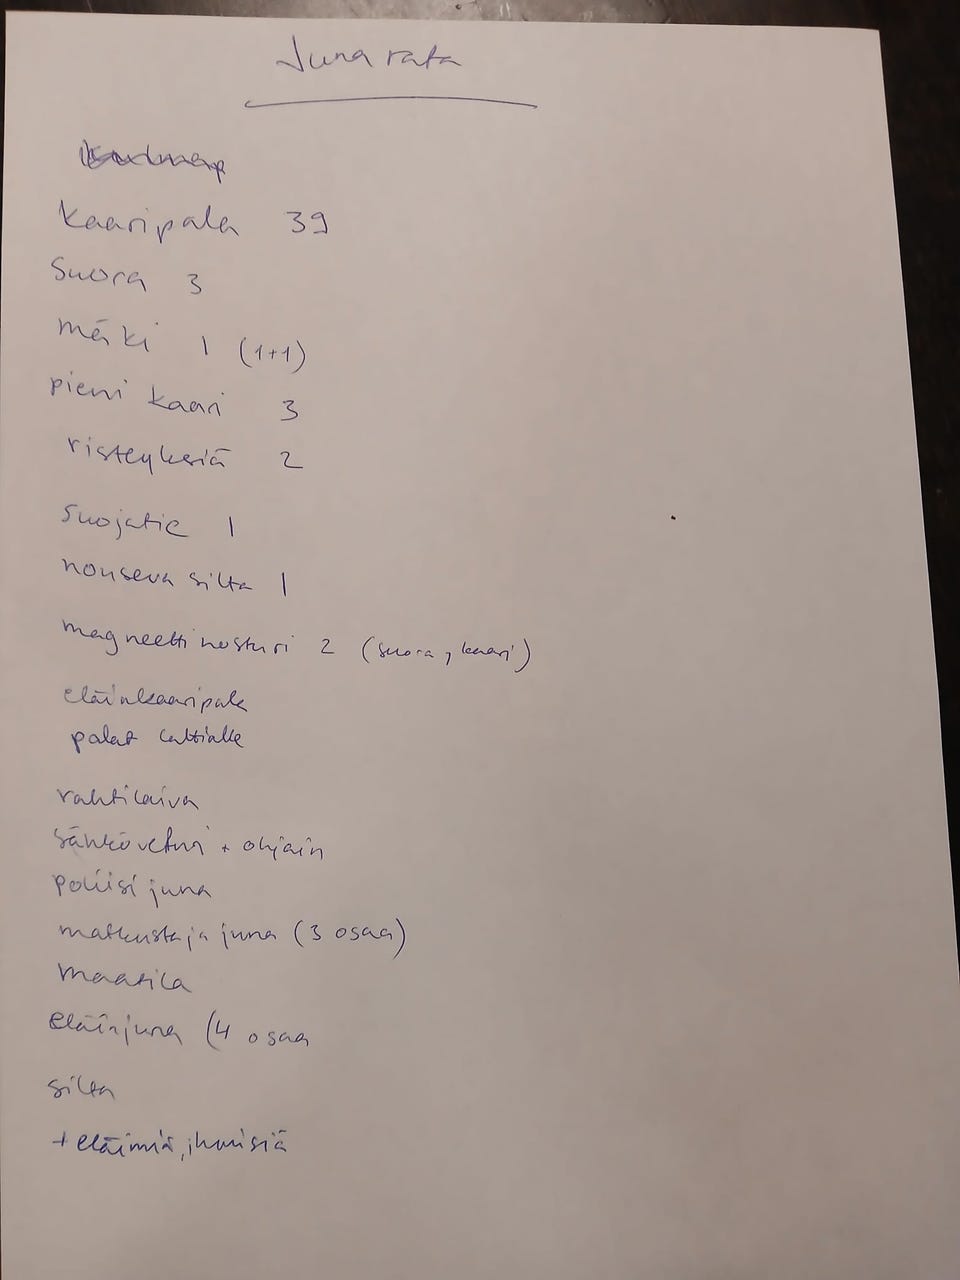 Juna rata
kaaripala 39
Suora 3
mäki 1 (1+1)
pieni kaari 3
risteyksiä 2
suojatie 1
nouseva silta 1
magneetti nosturi 2 (suora, kaari)
eläinkaaripala
palat lattialle
rahtilaiva
sähköveturi + ohjain
poliisi juna
matkustaja juna (3 osaa)
maatila
eläinjuna (4 osaa
silta
+ eläimiä, ihmisiä